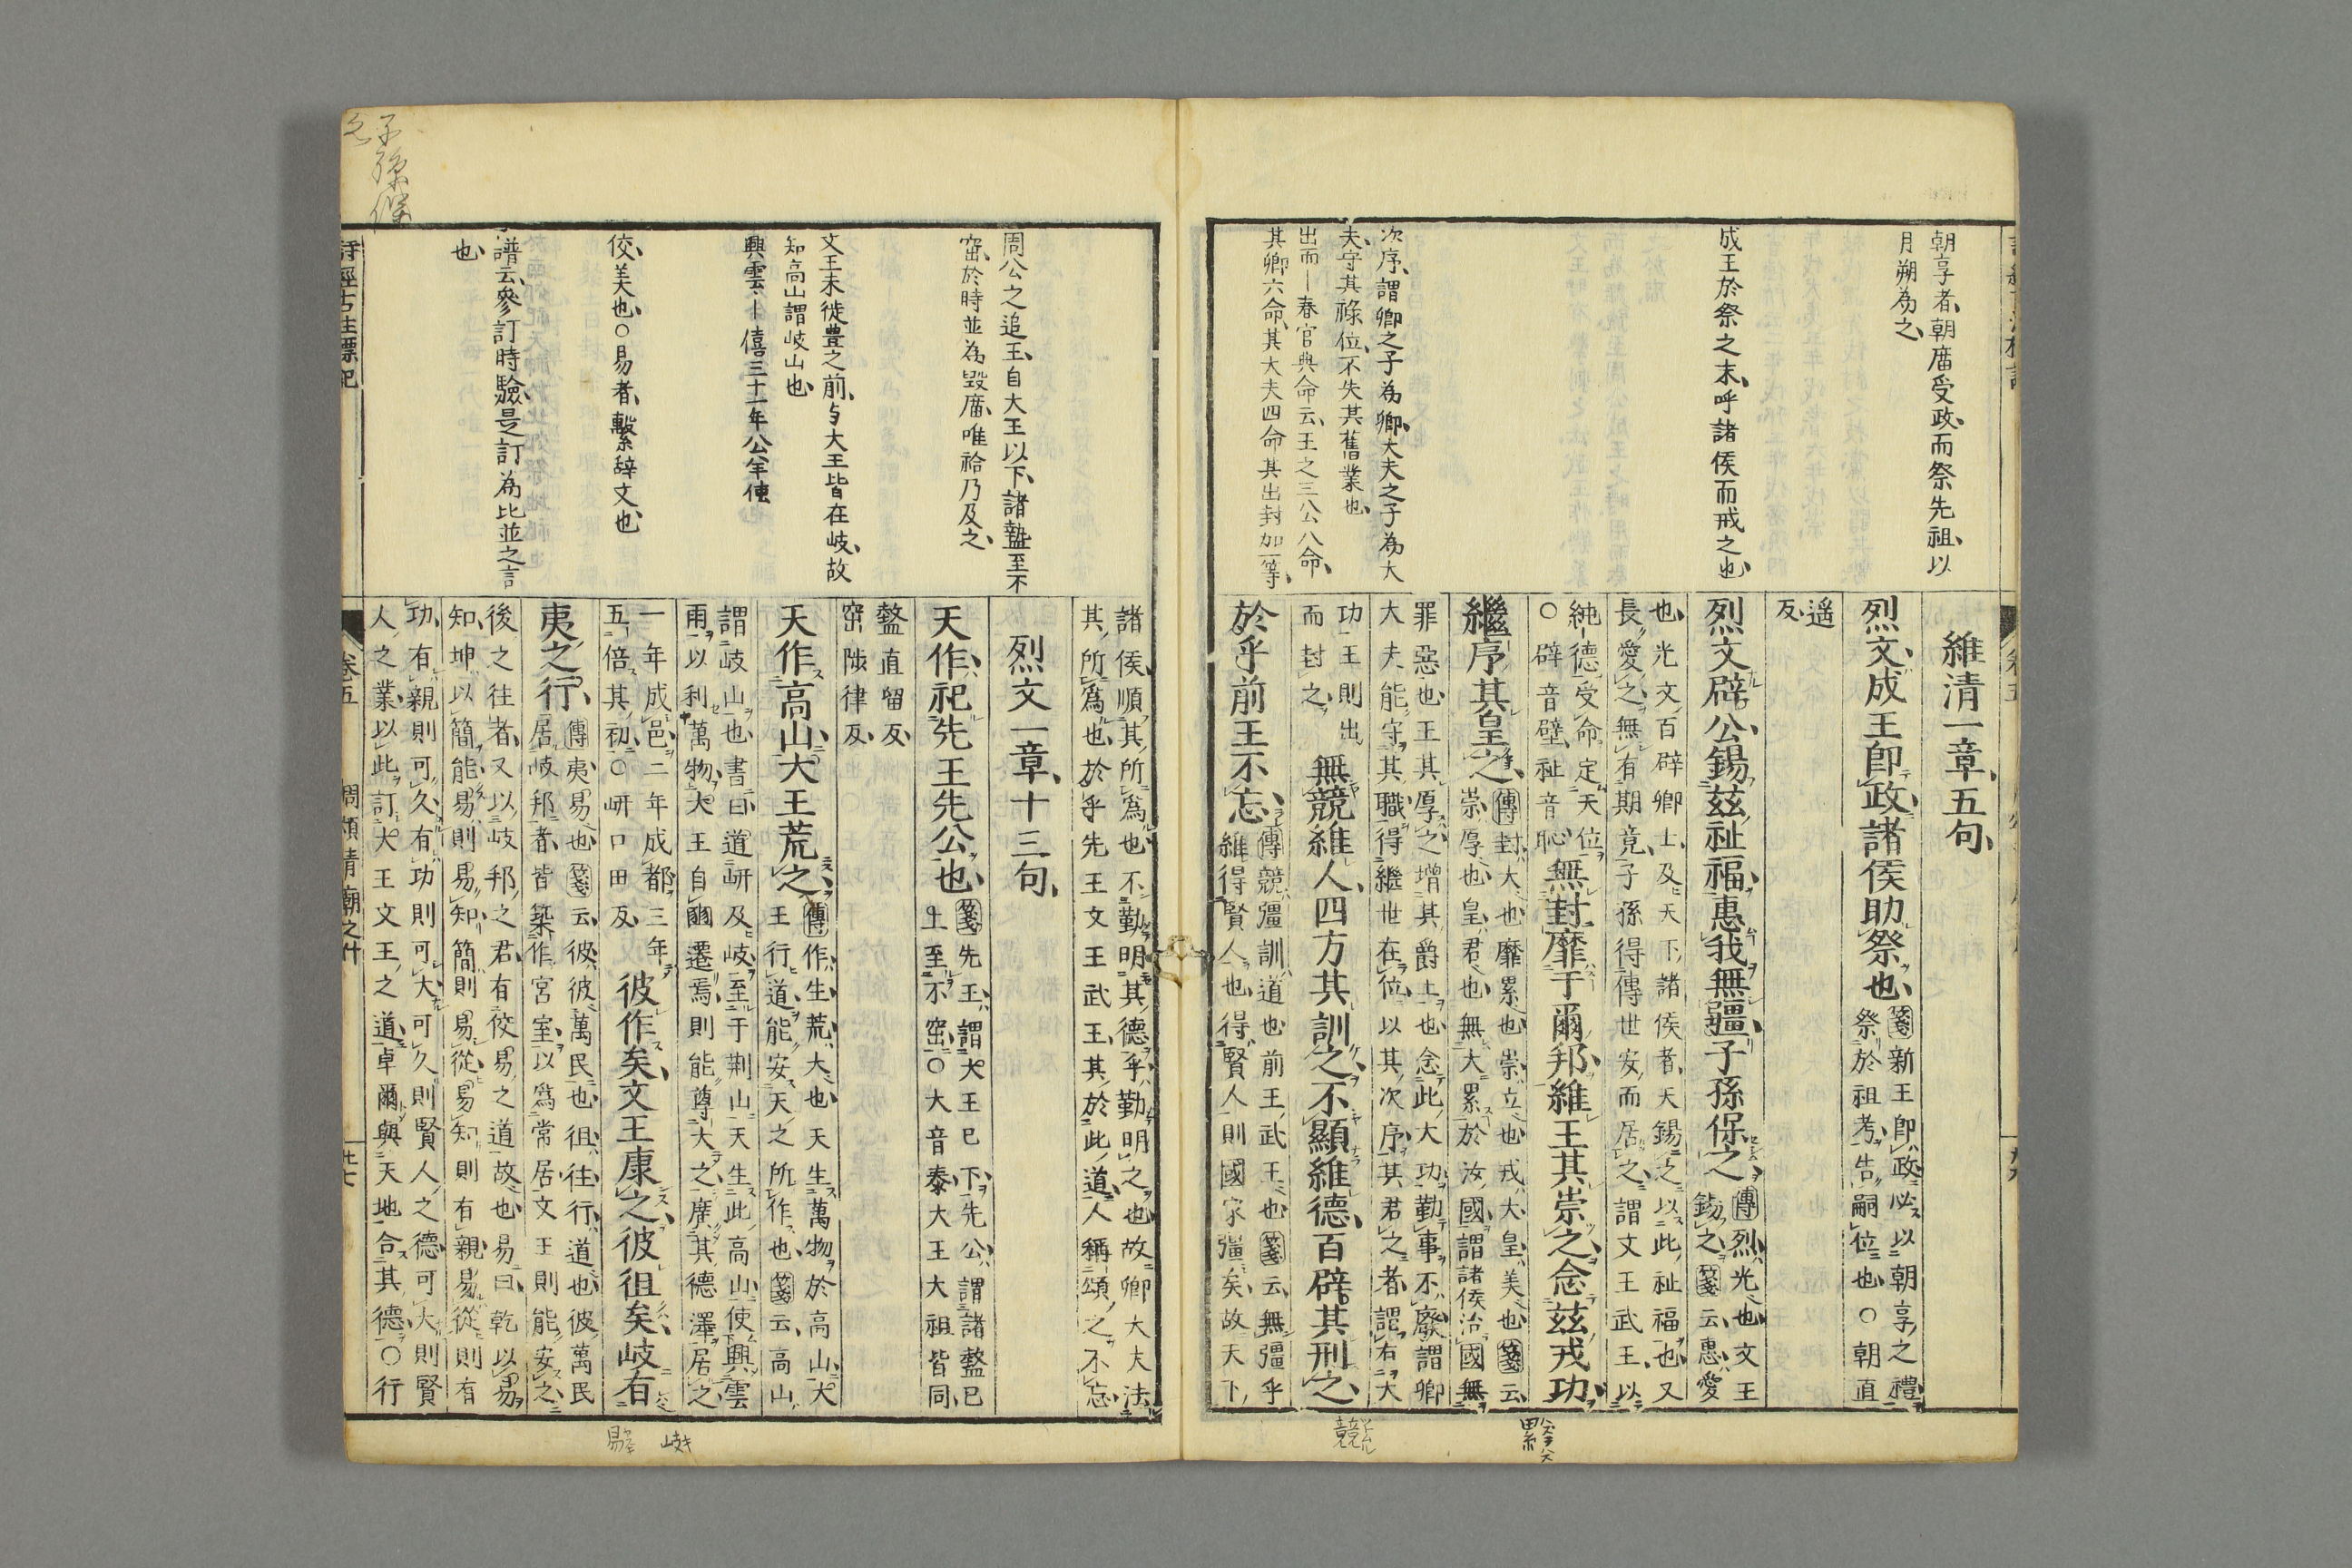 朝享者、朝廟受政、而祭先祖、以
月朔為之、
成王於祭之末、呼諸侯而戒之也、
次序、謂卿之子為卿、大夫之子為大
夫、守其祿位、不失其舊業也、
出而｜春官典命云、王之三公八命、
其卿六命、其大夫四命其出封加一等、
維清一章、五句、
烈文、成王卽政、諸侯助祭也、
箋新王卽政、必以朝享之禮、
祭於祖考、告嗣位也、○朝直
遥
反
烈文辟公、錫茲祉福、惠我無疆、子孫保之、
傳烈、光也、文王
錫之、箋云、惠、愛
也、光文、百辟卿士、及天下諸侯者、天錫之以此祉福也、又
長愛之、無有期竟、子孫得傳世安而居之、謂文王武王、以
純德受命定天位、
○辟音壁、祉音恥、
無封靡于爾邦、維王其崇之、念茲戎功、
繼序其皇之、
傳封、大也、靡、累也、崇、立也、戎、大、皇、美也、箋云、
崇、厚也、皇、君也、無大累於汝國、謂諸侯治國無
罪惡也、王其厚之、增其爵土也、念此大功、勤事不廢、謂卿
大夫能守其職、得繼世在位、以其次序、其君之者、謂右大
功、王則出
而封之、
無競維人、四方其訓之、不顯維德、百辟其刑之、
於乎前王不忘、
傳競、彊、訓、道也、前王、武王也、箋云、無彊乎
維得賢人也、得賢人、則國家彊矣、故天下、
累
競
諸侯順其所為也、不勤明其德乎、勤明之也、故卿大夫法
其所為也、於乎先王文王武王、其於此道、人稱頌之不忘、
烈文一章、十三句、
天作、祀先王先公也、
箋先王、謂大王已下、先公、謂諸盩已
上至不窋、○大音泰、大王大祖皆同、
盩直留反、
窋陟律反、
天作高山、大王荒之、
傳作、生、荒、大也、天生萬物於高山、大
王行道、能安天之所作也、箋云、高山、
謂岐山也、書曰、道岍及岐、至于荆山、天生此高山、使興雲
雨、以利萬物、大王自豳遷焉、則能尊大之、廣其德澤、居之
一年成邑、二年成都、三年
五倍其初、○岍口田反、
彼作矣、文王康之、彼徂矣、岐有
夷之行、
傳夷、易也、箋云、彼、彼萬民也、徂、往、行、道也、彼萬民
居岐邦者、皆築作宮室、以爲常居、文王則能安之、
後之往者、又以岐邦之君、有佼易之道故也、易曰、乾以易
知、坤以簡能、易則易知、簡則易從、易知則有親、易從則有
功、有親則可久、有功則可大、可久則賢人之德、可大則賢
人之業、以此訂大王文王之道、卓爾與天地合其德、○行
周公之追王、自大王以下、諸盩至不
窋、於時並為毀廟、唯祫乃及之、
文王未徙豊之前、与大王皆在岐、故
知高山謂岐山也、
興雲｜僖三十一年公羊傳
佼、美也、○易者、繫辞文也、
譜云、參訂時驗、是訂為比並之言
也、
詩經古注標記
卷五
周頌清廟之什
廿七
岐
易
子孫